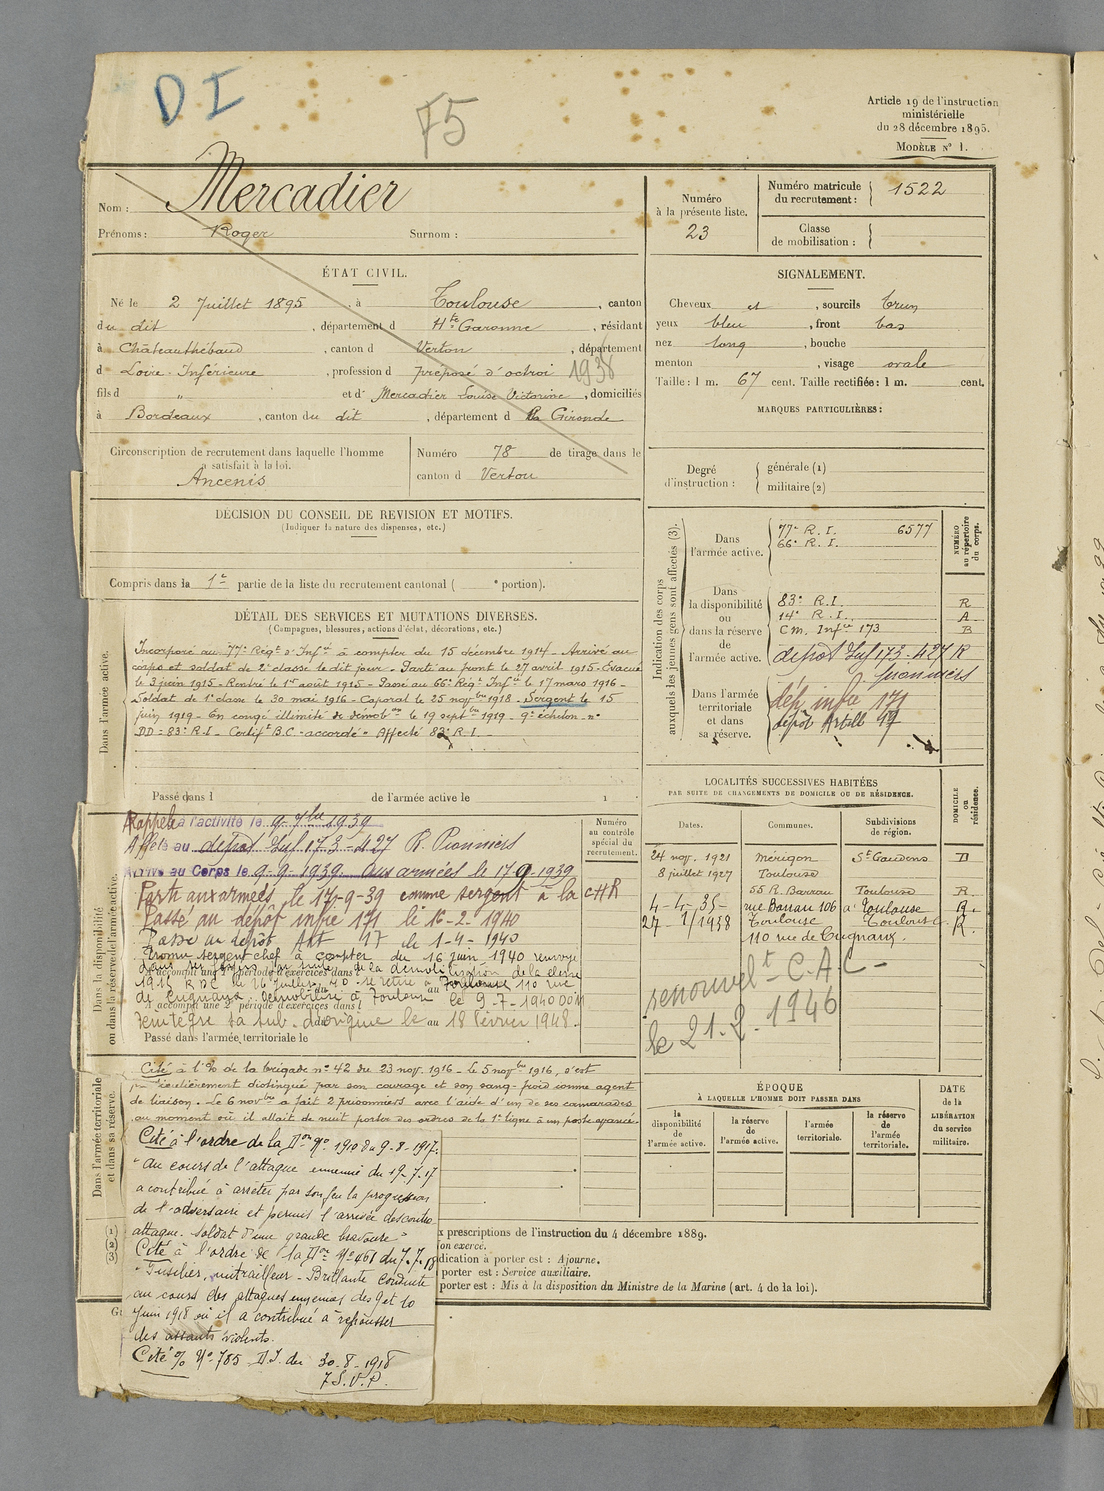 D I
75
Article 19 de l'instruction
ministérielle
du 28 décembre 1895.
MODÈLE N° 1.
Nom : Mercadier
Prénoms : Roger Surnom :
Numéro
à la présente liste.
23
Numéro matricule
du recrutement : 1522
Classe
de mobilisation :
ÉTAT CIVIL.
Né le 2 Juillet 1895, à Toulouse, canton
du dit, département d Hte Garonne, résidant
à Châteauthébaud, canton d Verton, département
d Loire-Inférieure, profession d préposé d'octroi 1938
fils d " et d' Mercadier Louise Victorine, domiciliés
à Bordeaux, canton du dit, département d la Gironde
Circonscription de recrutement dans laquelle l'homme
a satisfait à la loi.
Ancenis
Numéro 78 de tirage dans le
canton d Vertou
SIGNALEMENT.
Cheveux et, sourcils brun
yeux bleu, front bas
nez long, bouche
menton, visage ovale
Taille : 1 m. 67 cent. Taille rectifiée : 1 m. cent.
MARQUES PARTICULIÈRES :
Degré
d'instruction :
générale (1)
militaire (2)
DÉCISION DU CONSEIL DE REVISION ET MOTIFS.
(Indiquer la nature des dispenses, etc.)
Compris dans la 1re partie de la liste du recrutement cantonal ( e portion).
Indication des corps
auxquels les jeunes gens sont affectés (3).
NUMÉRO
au répertoire
du corps.
Dans
l'armée active.
77e R. I. 6577
66e R. I.
Dans
la disponibilité
ou
dans la réserve
de
l'armée active.
83e R.I. R
14e R.I. A
Cm. Infie 173 B
dépot Inf 173-427 R
pionniers
Dans l'armée
territoriale
et dans
sa réserve.
dép. infie 171
dépôt Artill 17
DÉTAIL DES SERVICES ET MUTATIONS DIVERSES.
(Campagnes, blessures, actions d'éclat, décorations, etc.)
Dans l'armée active.
Incorporé au 77e Régt d'Infie à compter du 15 décembre 1914 - Arrivé au
corps et soldat de 2e classe le dit jour - Parti au front le 27 avril 1915 - Evacué
le 3 juin 1915 - Rentré le 1er août 1915 - Passé au 66e Régt Infie le 17 mars 1916 -
Soldat de 1e classe le 30 mai 1916 - Caporal le 25 novbre 1918 - Sergent le 15
juin 1919 - En congé illimité de démobon le 19 septbre 1919 - 9e échelon - n°
DD = 83e R.I. - Certift B.C. "accordé" Affecté 83e R.I. -
Passé dans l de l'armée active le 1
Dans la disponibilité
ou dans la réserve de l'armée active.
Numéro
au contrôle
spécial du
recrutement.
Rappelé à l'activité le 9 7bre 1939
Affecté au dépot Inf 173-427 R. Pionniers
Arrivé au Corps le 9-9-1939. aux armées le 17-9-1939
Parti aux armées le 17-9-39 comme sergent à la CHR
Passé au dépôt infie 171 le 16-2-1940
Passé au dépôt Art 17 le 1-4-1940
Promu sergent chef à compter du 16 juin 1940 renvoyé
dans ses foyers par suite de la démobilisation de la classe
A accompli une 1re période d'exercices dans l
du au
de Cugnaux. Démobilisé à Toulouse le 9-7-1940
A accompli une 2e période d'exercices dans l
Réintégré sa sub. d'origine le 18 février 1948.
du au
Passé dans l'armée territoriale le
LOCALITÉS SUCCESSIVES HABITÉES
PAR SUITE DE CHANGEMENTS DE DOMICILE OU DE RÉSIDENCE.
Dates. Communes. Subdivisions
de région. DOMICILE
ou
résidence.
24 nov. 1921 Mérigon St Gaudens D
8 juillet 1927 Toulouse
55 R. Barrau Toulouse R.
4-4-35- rue Barrau 106 à Toulouse R.
27-1/1938 Toulouse Toulouse R.
110 rue de Cugnaux.
renouvelt C.A.C-
le 21.2.1946
Dans l'armée territoriale
et dans sa réserve.
Cité à l'O/ de la brigade n° 42 du 23 nov. 1916 - le 5 novbre 1916, s'est
particulièrement distingué par son courage et son sang-froid comme agent
de liaison. Le 6 novbre a fait 2 prisonniers avec l'aide d'un de ses camarades
au moment où il allait de nuit porter des ordres de la 1e ligne à un poste avancé.
Cité à l'ordre de la Don N° 1910 du 9-8-1917.
"Au cours de l'attaque ennemie du 19-7-17
a contribué à arrêter par son feu la progression
de l'adversaire et permis l'arrivée des contre-
attaque. Soldat d'une grande bravoure"
Cité à l'ordre de la Don N° 461 du 7.7.18
"Fusilier, mitrailleur - Brillante conduite
au cours des attaques ennemies des 9 et 10
Juin 1918 où il a contribué à repousser
des assauts violents.
Cité O/ N° 785 D.I. du 30-8-1918
T.S.V.P.
ÉPOQUE
À LAQUELLE L'HOMME DOIT PASSER DANS
la
disponibilité
de
l'armée active.
la réserve
de
l'armée active.
l'armée
territoriale.
la réserve
de
l'armée
territoriale.
DATE
de la
LIBÉRATION
du service
militaire.
(1)
(2)
(3)
x prescriptions de l'instruction du 4 décembre 1889.
on exercé.
dication à porter est : Ajourne.
porter est : Service auxiliaire.
porter est : Mis à la disposition du Ministre de la Marine (art. 4 de la loi).